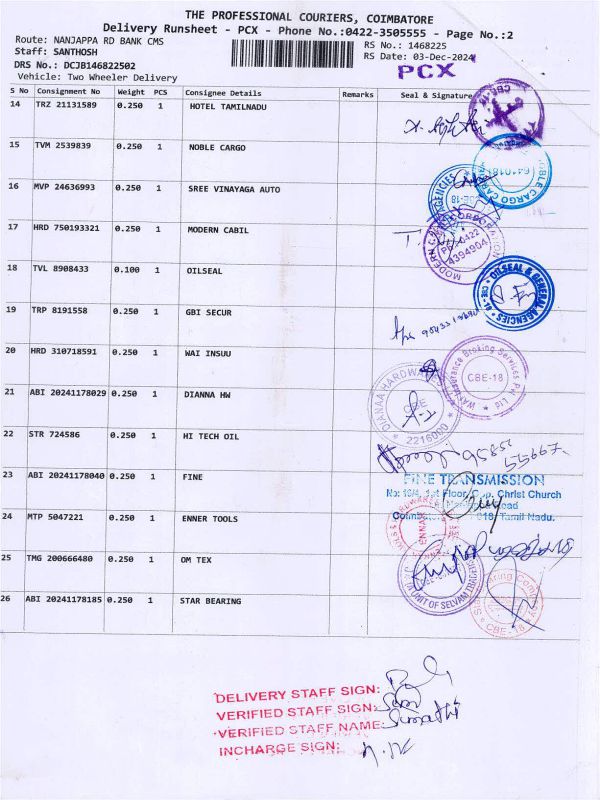 THE PROFESSIONAL COURIERS, COIMBATORE
Delivery Runsheet - PCX - Phone No.:0422-3505555 - Page No.:2
Route: NANJAPPA RD BANK CMS
RS No.: 1468225
Staff: SANTHOSH
RS Date: 03-Dec-2024
DRS No.: DCJB146822502
PCX
Vehicle: Two Wheeler Delivery
S No Consignment No Weight PCS Consignee Details Remarks Seal & Signature
14 TRZ 21131589 0.250 1 HOTEL TAMILNADU
15 TVM 2539839 0.250 1 NOBLE CARGO
16 MVP 24636993 0.250 1 SREE VINAYAGA AUTO
17 HRD 750193321 0.250 1 MODERN CABIL
18 TVL 8908433 0.100 1 OILSEAL
OILSEAL & GENERAL AGENCIES
19 TRP 8191558 0.250 1 GBI SECUR
20 HRD 310718591 0.250 1 WAI INSUU
CBE-18
21 ABI 20241178029 0.250 1 DIANNA HW
DIANAA HARDWARE
CBE
2216000
22 STR 724586 0.250 1 HI TECH OIL
23 ABI 20241178040 0.250 1 FINE
FINE TRANSMISSION
1st Floor, Christ Church
Tamil Nadu.
24 MTP 5047221 0.250 1 ENNER TOOLS
25 TMG 200666480 0.250 1 OM TEX
26 ABI 20241178185 0.250 1 STAR BEARING
CBE-18
DELIVERY STAFF SIGN:
VERIFIED STAFF SIGN:
VERIFIED STAFF NAME: Sumathi
INCHARGE SIGN: